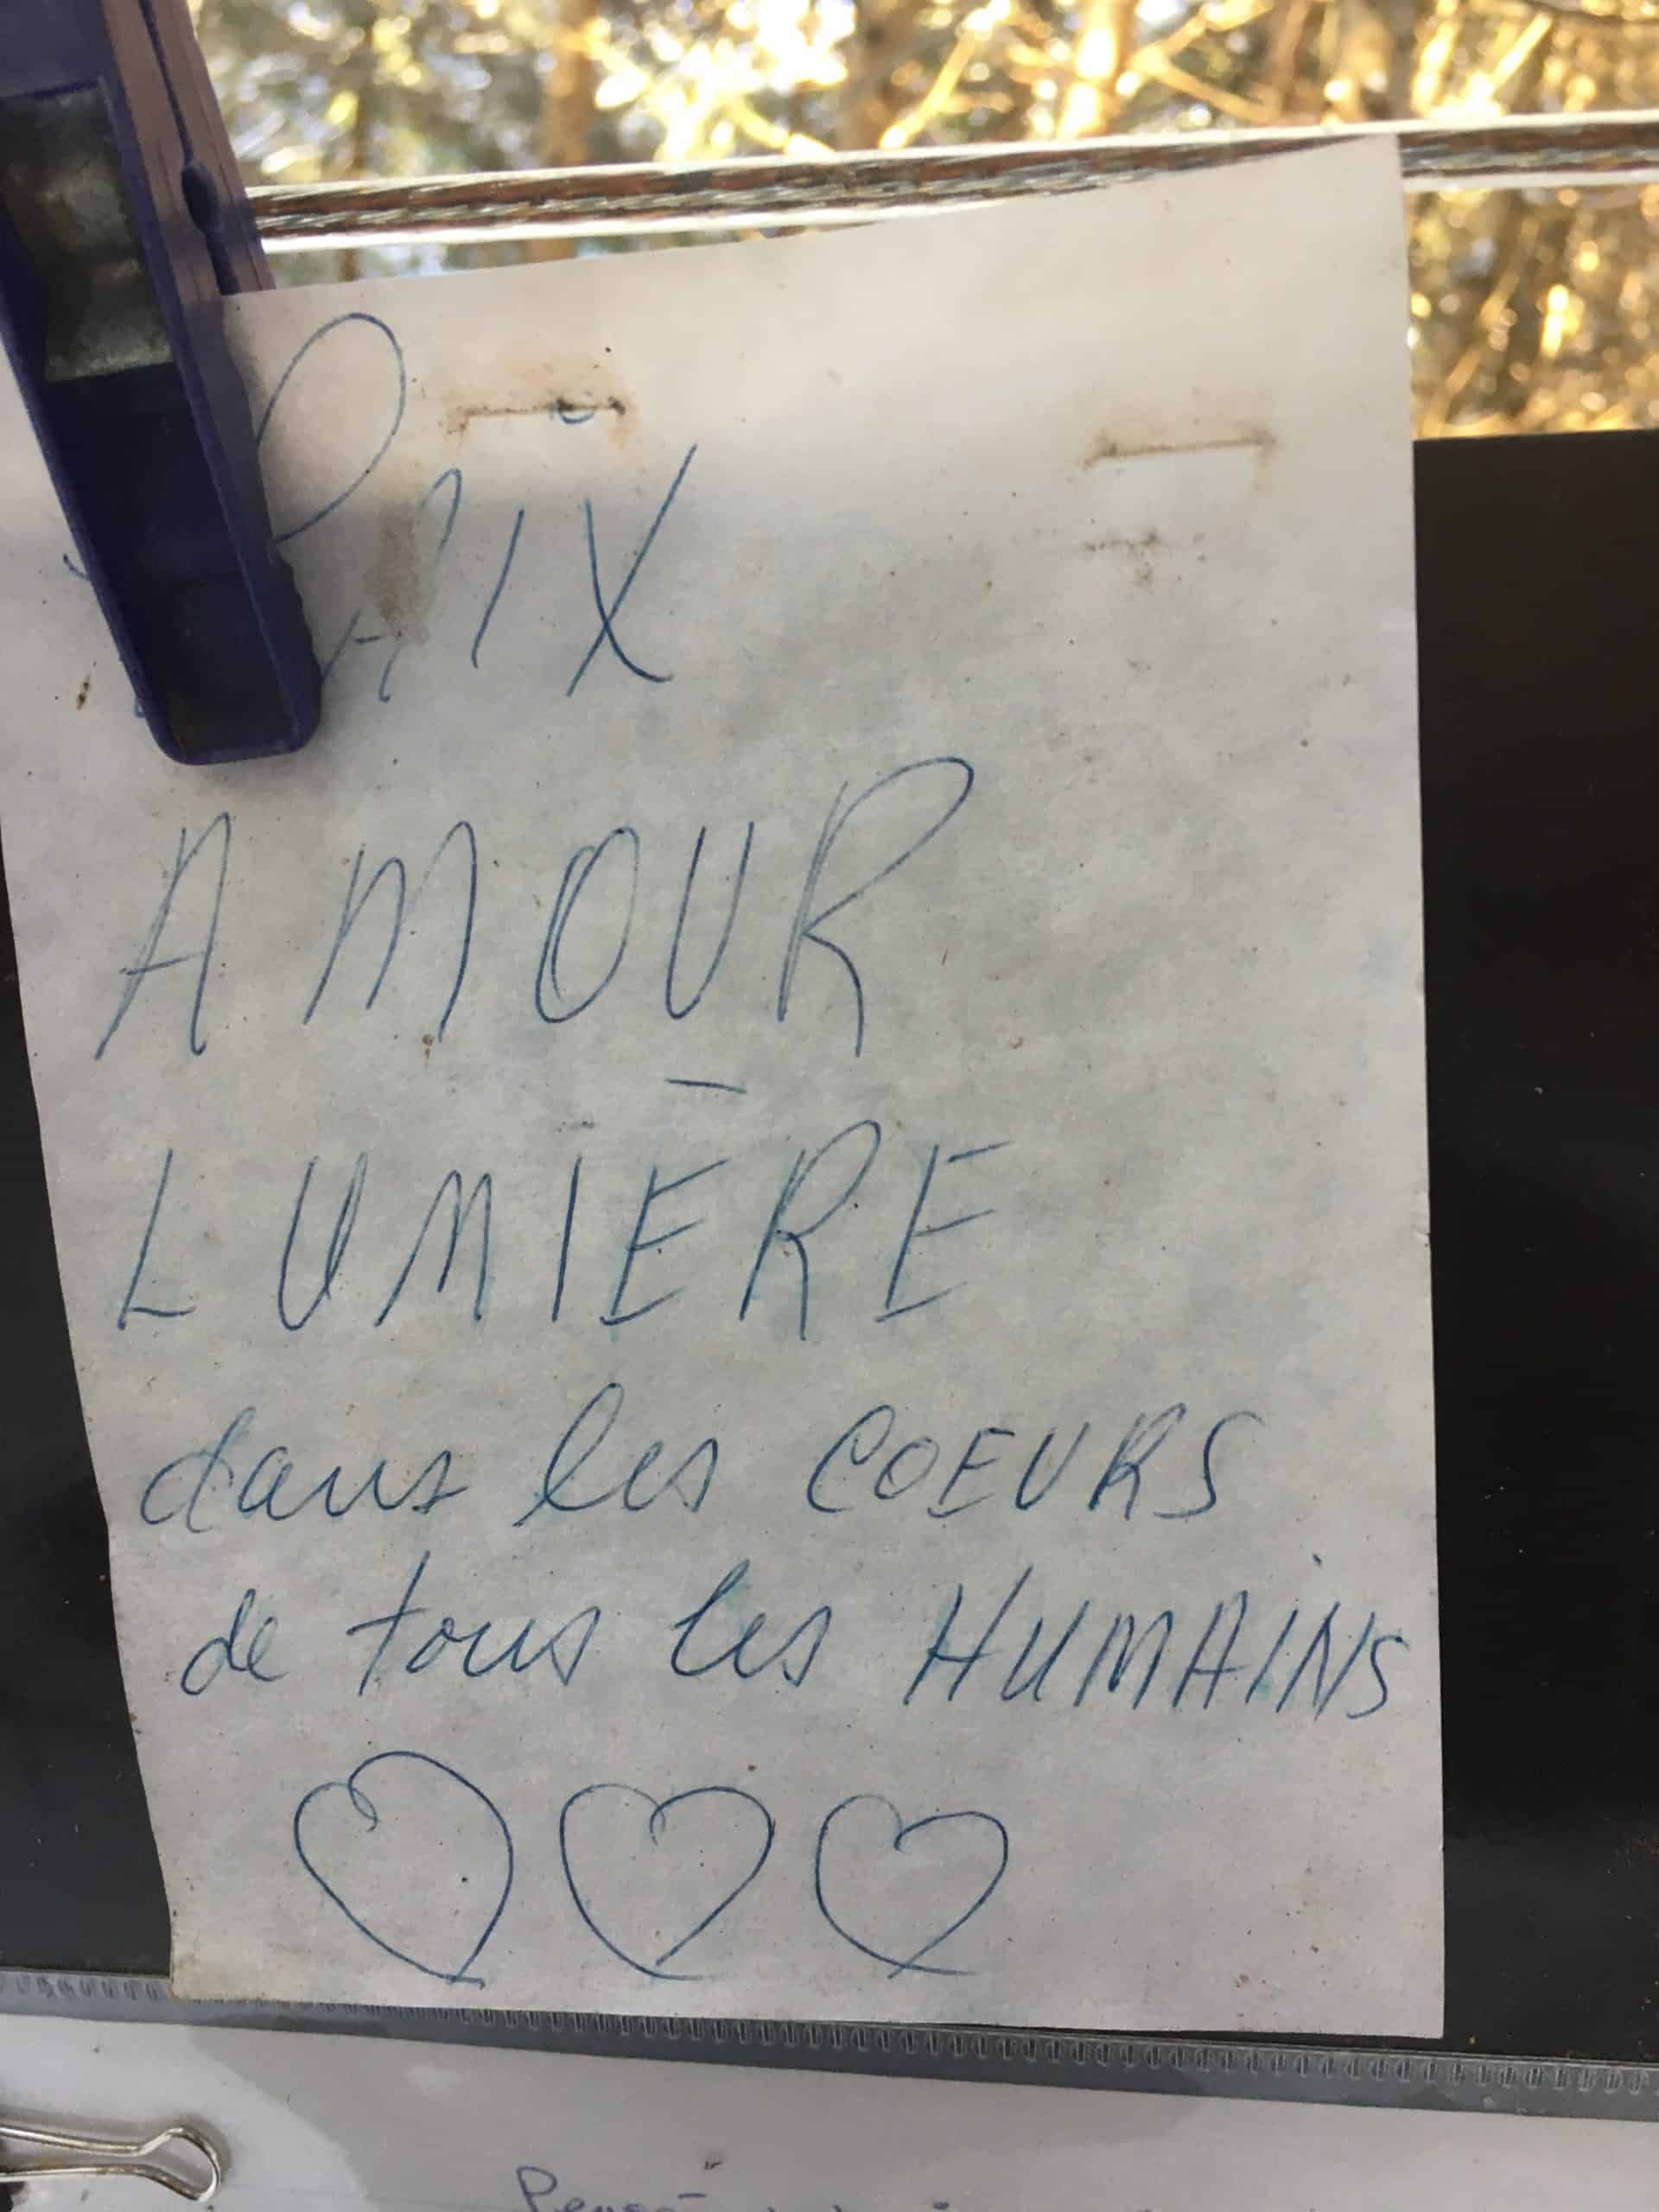 PAIX
AMOUR
LUMIÈRE
dans les COEURS
de tous les HUMAINS